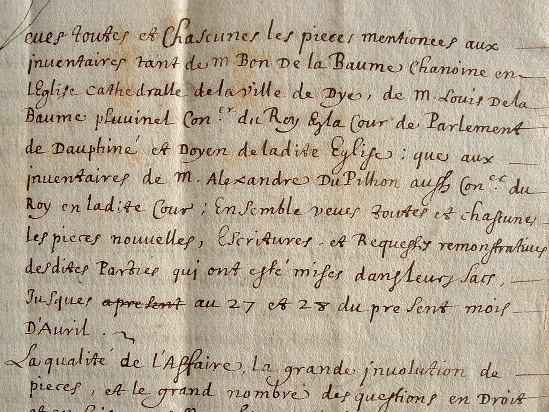 veues toutes et Chascunes les pieces mentionees aux
jnventaires tant de m Bon De la Baume Chanoine en
lEglise cathedralle de la ville de Dye, de M. Louis De la
Baume pluvinel Con.er du Roy En la Cour de Parlement
de Dauphiné et Doyen de ladite Eglise ; que aux
jnventaires de M. Alexandre Du Pilhon aussy Con.er du
Roy en ladite Cour ; Ensemble veues toutes et chascunes
les pieces nouvelles, Escritures et Requestes remonstratives
desdites Parties qui ont esté mises dans leurs sacs,
Jusques apresent au 27 et 28 du present mois
D'Avril .
La qualité de l'Affaire, la grande jnvolution de
pieces, et le grand nombre des questions en Droit